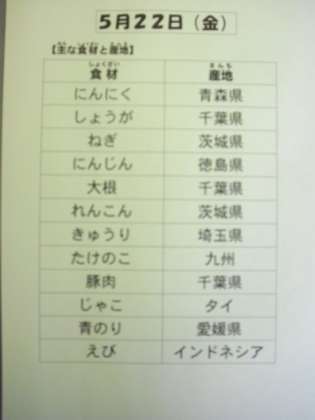 5月22日（金）
【主な食材と産地】
食材 産地
にんにく 青森県
しょうが 千葉県
ねぎ 茨城県
にんじん 徳島県
大根 千葉県
れんこん 茨城県
きゅうり 埼玉県
たけのこ 九州
豚肉 千葉県
じゃこ タイ
青のり 愛媛県
えび インドネシア